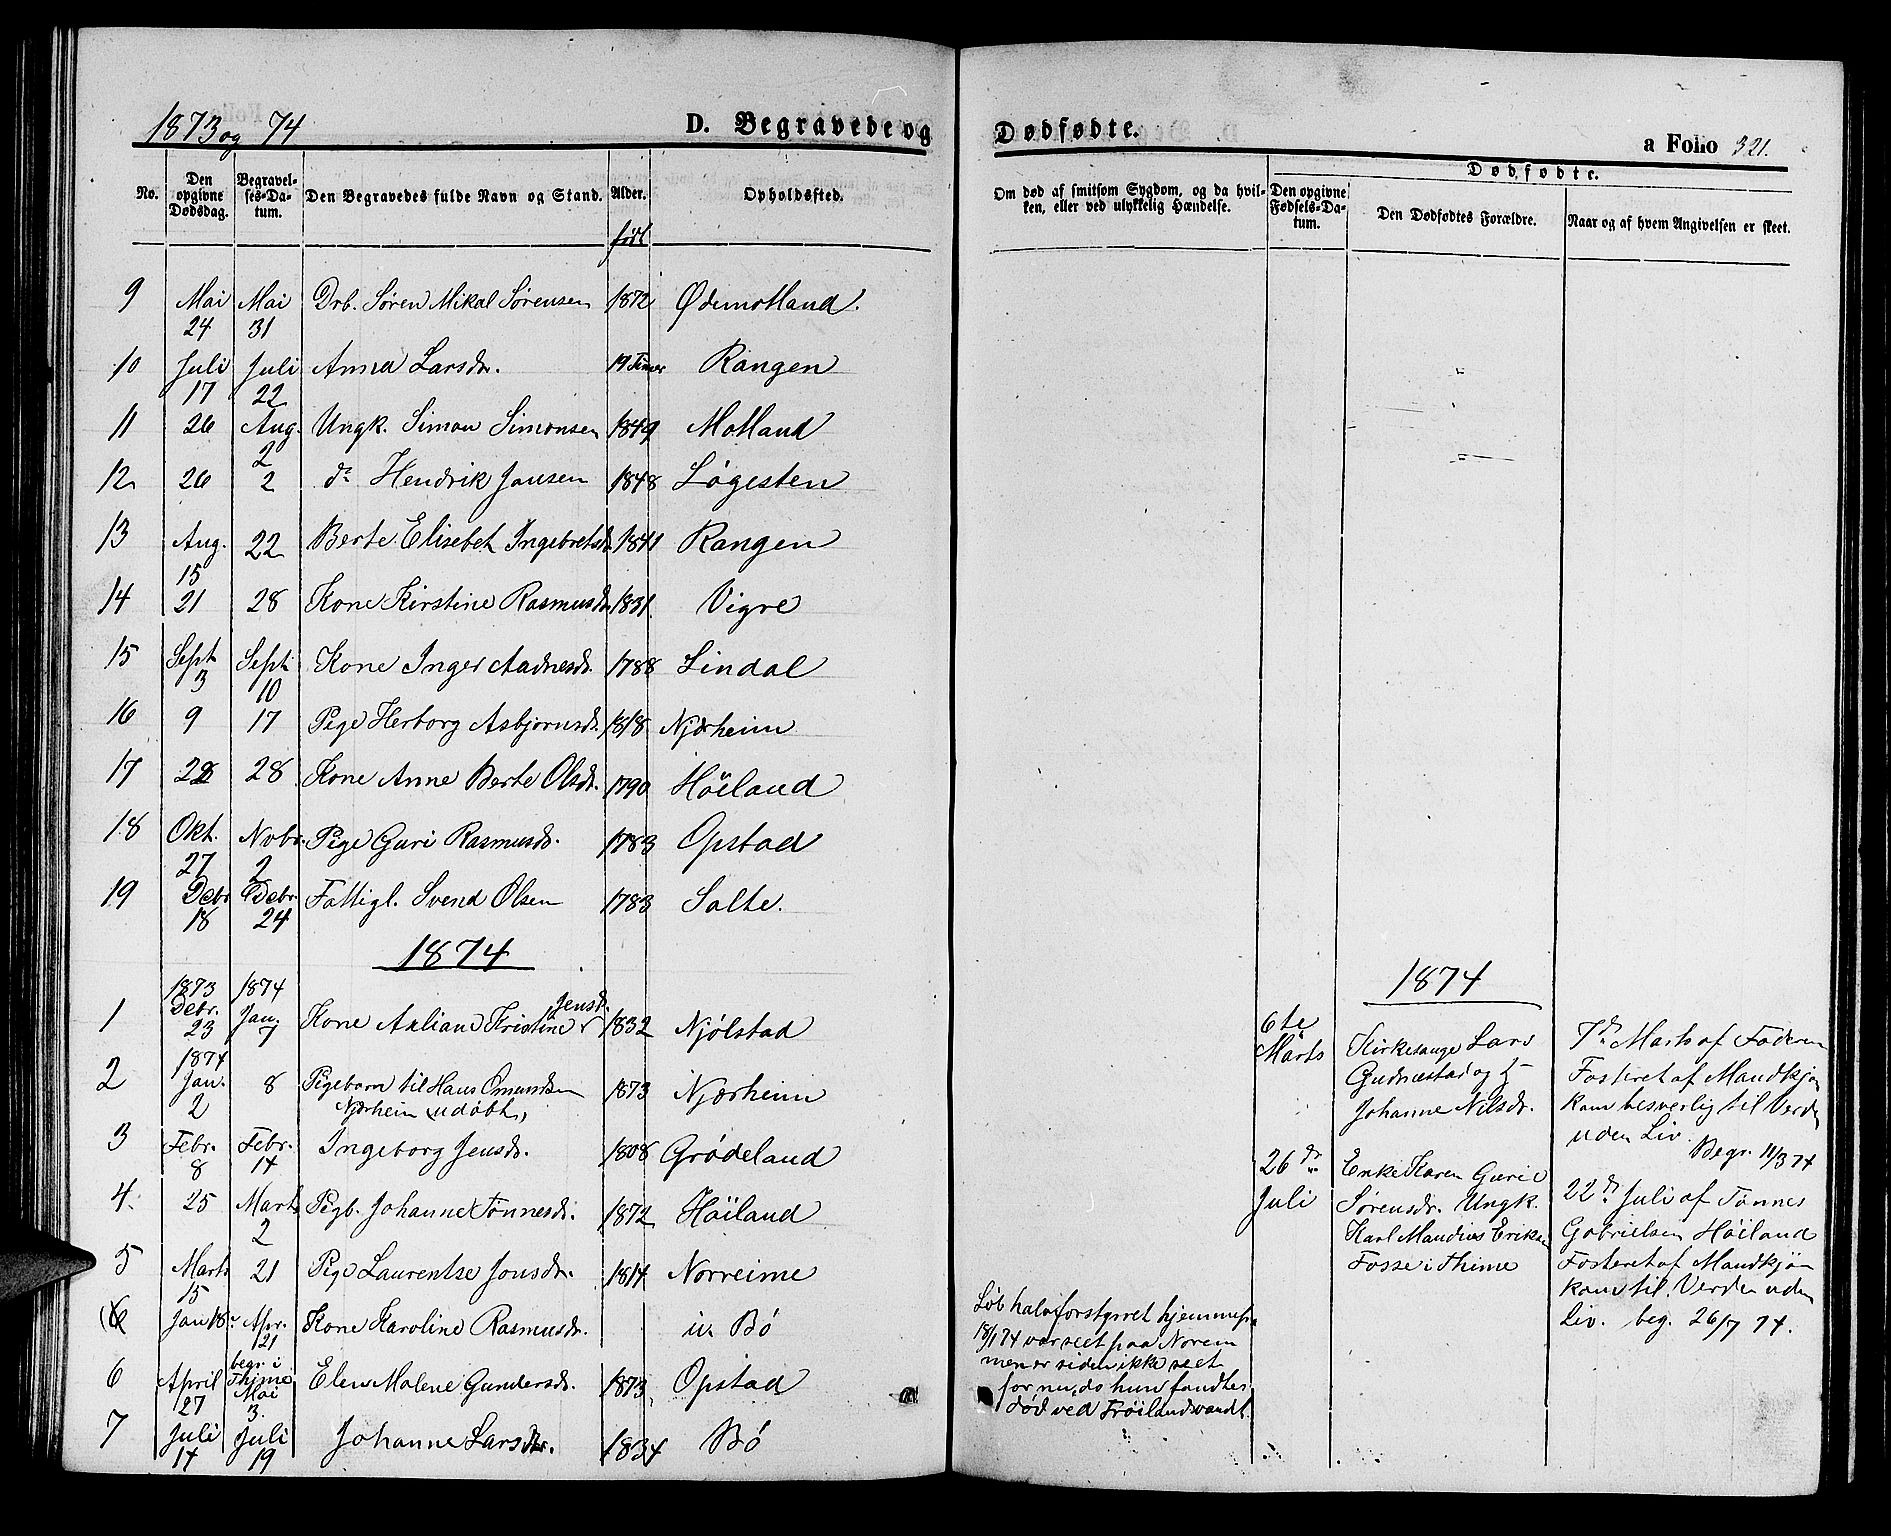 1873 og 74
D. Begravede og
No.
Den opgivne Dødsdag.
Begravelses-Datum.
Den Begravedes fulde Navn og Stand.
Alder.
født
Opholdsted.
9 Mai 24 Mai 31 Drb. Søren Mikal Sørensen 1872 Ødemotland.
10 Juli 17 Juli 22 Anna Larsdr. 19 Timer Rangen
11 26 Aug. 2 Ungk. Simon Simonsen 1849 Motland
12 26 2 do Hendrik Jansen 1848 Løgesten
13 Aug. 15 22 Berte Elisebet Ingebretsdr. 1841 Rangen
14 21 28 Kone Kirstine Rasmusdr. 1831. Vigre
15 Sept 3 Sept 10 Kone Inger Aadnesdr. 1788 Lindal
16 9 17 Pige Herborg Asbjørnsdr. 1818 Njærheim
17 22 28 Kone Anne Berte Olsdr. 1790 Höiland
18 Okt. 27 Nobr. 2 Pige Guri Rasmusdr. 1783 Opstad
19 Debr 18 Debr. 24 Fattigl. Svend Olsen 1783 Salte.
1874
1 1873 Debr. 23 1874 Jan. 7 Kone Axliane Kristine Jensdr. 1832 Njølstad
2 1874 Jan. 2 8 Pigebarn til Hans Omundsen
Njærheim (udøbt) 1873 Njærheim
3 Febr. 8 Febr. 14 Ingeborg Jensdr. 1808 Grødeland
4. 25 Marts 2 Pigb. Johanne Tønnesdr. 1872 Höiland
5 Marts 15 21 Pige Laurentse Jonsdr. 1814 Norreime
(6 Jan 18. Apr. 21 begr. i Thime Kone Karoline Rasmusdr. Bø
6 April 27 Mai 3. Elen Malene Gundersdr. 1873. Opstad
7 Juli 14 Juli 19 Johanne Larsdtr. 1834 Bø
Dødfødte.
a Folio 321.
Om død af smitsom Sygdom, og da hvilken, eller ved ulykkelig Hændelse.
Dødfødte.
Den opgivne Fødsels-Datum.
Den Dødfødtes Forældre.
Naar og af hvem Angivelsen er skeet.
Løb halvforstyrret hjemmefra
18/1 74 var seet paa Norem
men er siden ikke seet
før nu, da hun fandtes
død ved Frøilandsvandt.
1874
6te
Marts
Kirkesanger Lars
Gudnestad og H
Johanne Nilsdr.
7de Marts af Faderen
Fosteret af Mandkjøn
kom besverlig til Verden
uden Liv.
Begr. 11/3 74
26de
Juli
Enke Karen Gurie
Sørensdr. Ungk.
Karl Maudius Eriksen
Fosse i Thime
22de Juli af Tønnes
Gabrielsen Høiland
Fosteret af Mandkjøn
kom til Verden uden
Liv. beg. 26/7 74.